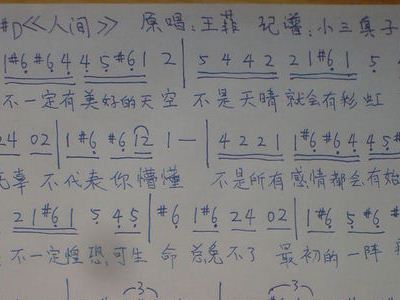 #D<<人间>> 原唱:王菲 记谱:小三真子
1#6#64 45#61 2 | 5 4 4 2 21#61 5
不一定有美好的天空 不是天晴就会有彩虹
24 02 | 1#6 #612 1 — | 4221 1#6#64 45#
辜 不代表你懵懂 不是所有感情都会有始
21#61 5 45 | #6 1#6 24 02 | 1#6 5#6 #
不一定惶恐 可生 命 总免不了 最初的一阵
3 3